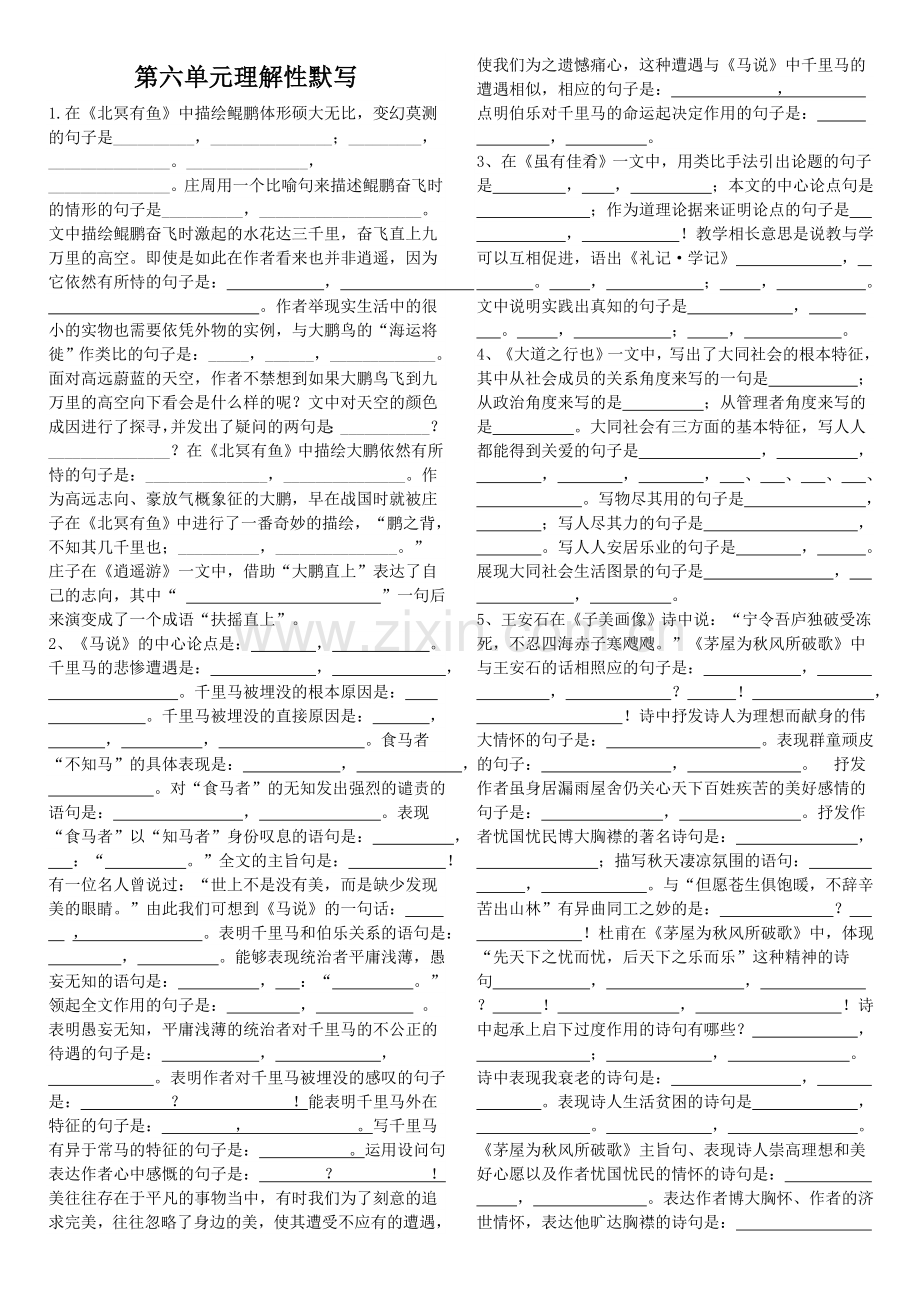 第六单元理解性默写
1.在《北冥有鱼》中描绘鲲鹏体形硕大无比，变幻莫测
的句子是__________，_______________；_________，
_______________。_______________，
_______________。庄周用一个比喻句来描述鲲鹏奋飞时
的情形的句子是__________，____________________。
文中描绘鲲鹏奋飞时激起的水花达三千里，奋飞直上九
万里的高空。即使是如此在作者看来也并非逍遥，因为
它依然有所恃的句子是：____________，__________________
__________________________。作者举现实生活中的很
小的实物也需要依凭外物的实例，与大鹏鸟的“海运将
徙”作类比的句子是：_____，______，_____________。
面对高远蔚蓝的天空，作者不禁想到如果大鹏鸟飞到九
万里的高空向下看会是什么样的呢？文中对天空的颜色
成因进行了探寻,并发出了疑问的两句是:____________？
_______________？在《北冥有鱼》中描绘大鹏依然有所
恃的句子是：_______________，_______________。作
为高远志向、豪放气概象征的大鹏，早在战国时就被庄
子在《北冥有鱼》中进行了一番奇妙的描绘，“鹏之背，
不知其几千里也；__________，_______________。”
庄子在《逍遥游》一文中，借助“大鹏直上”表达了自
己的志向，其中“ ________________________”一句后
来演变成了一个成语“扶摇直上”。
2、《马说》的中心论点是：_________，____________。
千里马的悲惨遭遇是：____________，______________，
________________。千里马被埋没的根本原因是：____
____________。千里马被埋没的直接原因是：_______，
_______，__________，__________________。食马者
“不知马”的具体表现是：____________，_____________，
_____________。对“食马者”的无知发出强烈的谴责的
语句是：_________________，_______________。表现
“食马者”以“知马者”身份叹息的语句是：__________，
___：“__________。”全文的主旨句是：____________！
有一位名人曾说过：“世上不是没有美，而是缺少发现
美的眼睛。”由此我们可想到《马说》的一句话：_____
__，_______________。表明千里马和伯乐关系的语句是：
_________，__________。能够表现统治者平庸浅薄，愚
妄无知的语句是：__________，___：“__________。”
领起全文作用的句子是：_________，____________ 。
表明愚妄无知，平庸浅薄的统治者对千里马的不公正的
待遇的句子是：____________，_____________，
_____________。表明作者对千里马被埋没的感叹的句子
是：___________？_____________！能表明千里马外在
特征的句子是：_________，______________。写千里马
有异于常马的特征的句子是：___________。运用设问句
表达作者心中感慨的句子是：________？____________！
美往往存在于平凡的事物当中，有时我们为了刻意的追
求完美，往往忽略了身边的美，使其遭受不应有的遭遇，
使我们为之遗憾痛心，这种遭遇与《马说》中千里马的
遭遇相似，相应的句子是：_____________，___________
点明伯乐对千里马的命运起决定作用的句子是：______
_________，__________。
3、在《虽有佳肴》一文中，用类比手法引出论题的句子
是_________，____，__________；本文的中心论点句是
______________；作为道理论据来证明论点的句子是___
___________，____________！教学相长意思是说教与学
可以互相促进，语出《礼记·学记》_____________，__
_______。_____，____________；_____，____________。
文中说明实践出真知的句子是_____________，________
___。_____，____________；_____，____________。
4、《大道之行也》一文中，写出了大同社会的根本特征，
其中从社会成员的关系角度来写的一句是___________；
从政治角度来写的是__________；从管理者角度来写的
是_________。大同社会有三方面的基本特征，写人人
都能得到关爱的句子是_______________，__________，
________，________，________，___、___、___、___、
_____________。写物尽其用的句子是_______________，
________；写人尽其力的句子是___________________，
________。写人人安居乐业的句子是________，_____。
展现大同社会生活图景的句子是________________，____
____________，___________。
5、王安石在《子美画像》诗中说：“宁令吾庐独破受冻
死，不忍四海赤子寒飕飕。”《茅屋为秋风所破歌》中
与王安石的话相照应的句子是：_____________，_______
_________，_____________？______！______________，
__________________！诗中抒发诗人为理想而献身的伟
大情怀的句子是：___________________。表现群童顽皮
的句子：________________，______________。 抒发
作者虽身居漏雨屋舍仍关心天下百姓疾苦的美好感情的
句子是：______________，________________。抒发作
者忧国忧民博大胸襟的著名诗句是：_______________，
_______________；描写秋天凄凉氛围的语句：________
______，______________。与“但愿苍生俱饱暖，不辞辛
苦出山林”有异曲同工之妙的是：______________？
_____________！杜甫在《茅屋为秋风所破歌》中，体现
“先天下之忧而忧，后天下之乐而乐”这种精神的诗
句____________，_________________，_____________
？______！_______________，__________________！诗
中起承上启下过度作用的诗句有哪些？_____________，
______________；______________，_______________。
诗中表现我衰老的诗句是：________________，_______
________。表现诗人生活贫困的诗句是_____________，
______________。______________，_______________。
《茅屋为秋风所破歌》主旨句、表现诗人崇高理想和美
好心愿以及作者忧国忧民的情怀的诗句是：___________
_____，______________。表达作者博大胸怀、作者的济
世情怀，表达他旷达胸襟的诗句是：_________________
www.zixin.com.cn